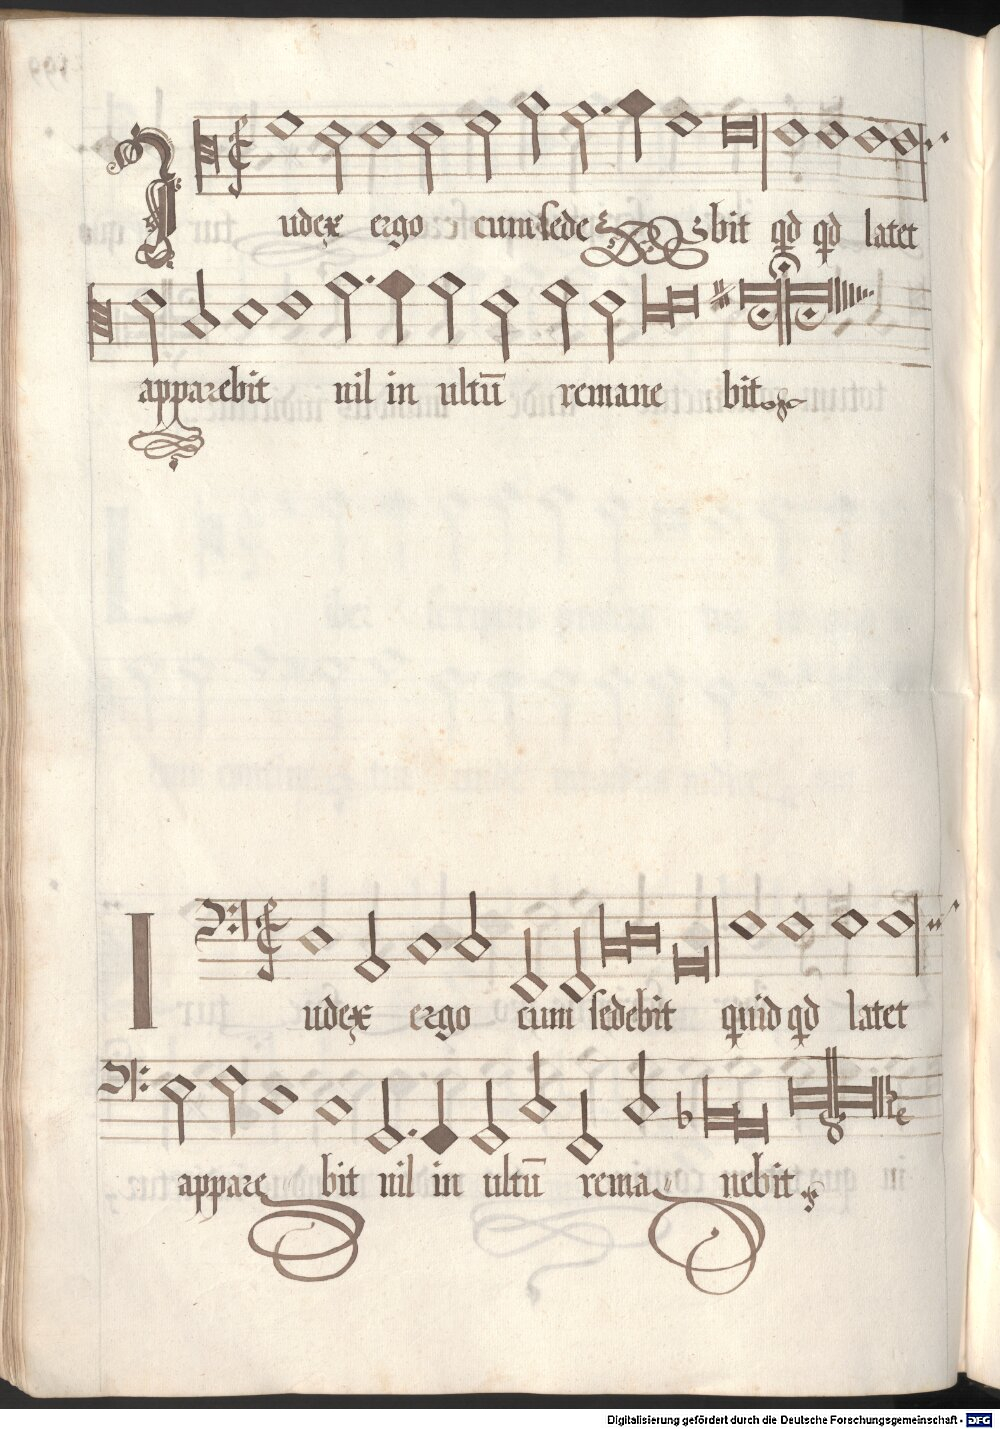 Iudex ergo cum sede bit qd qd latet
apparebit nil in ultū remane bit
Iudex ergo cum sedebit quid qd latet
appare bit nil in ultū rema nebit
Digitalisierung gefördert durch die Deutsche Forschungsgemeinschaft - DFG